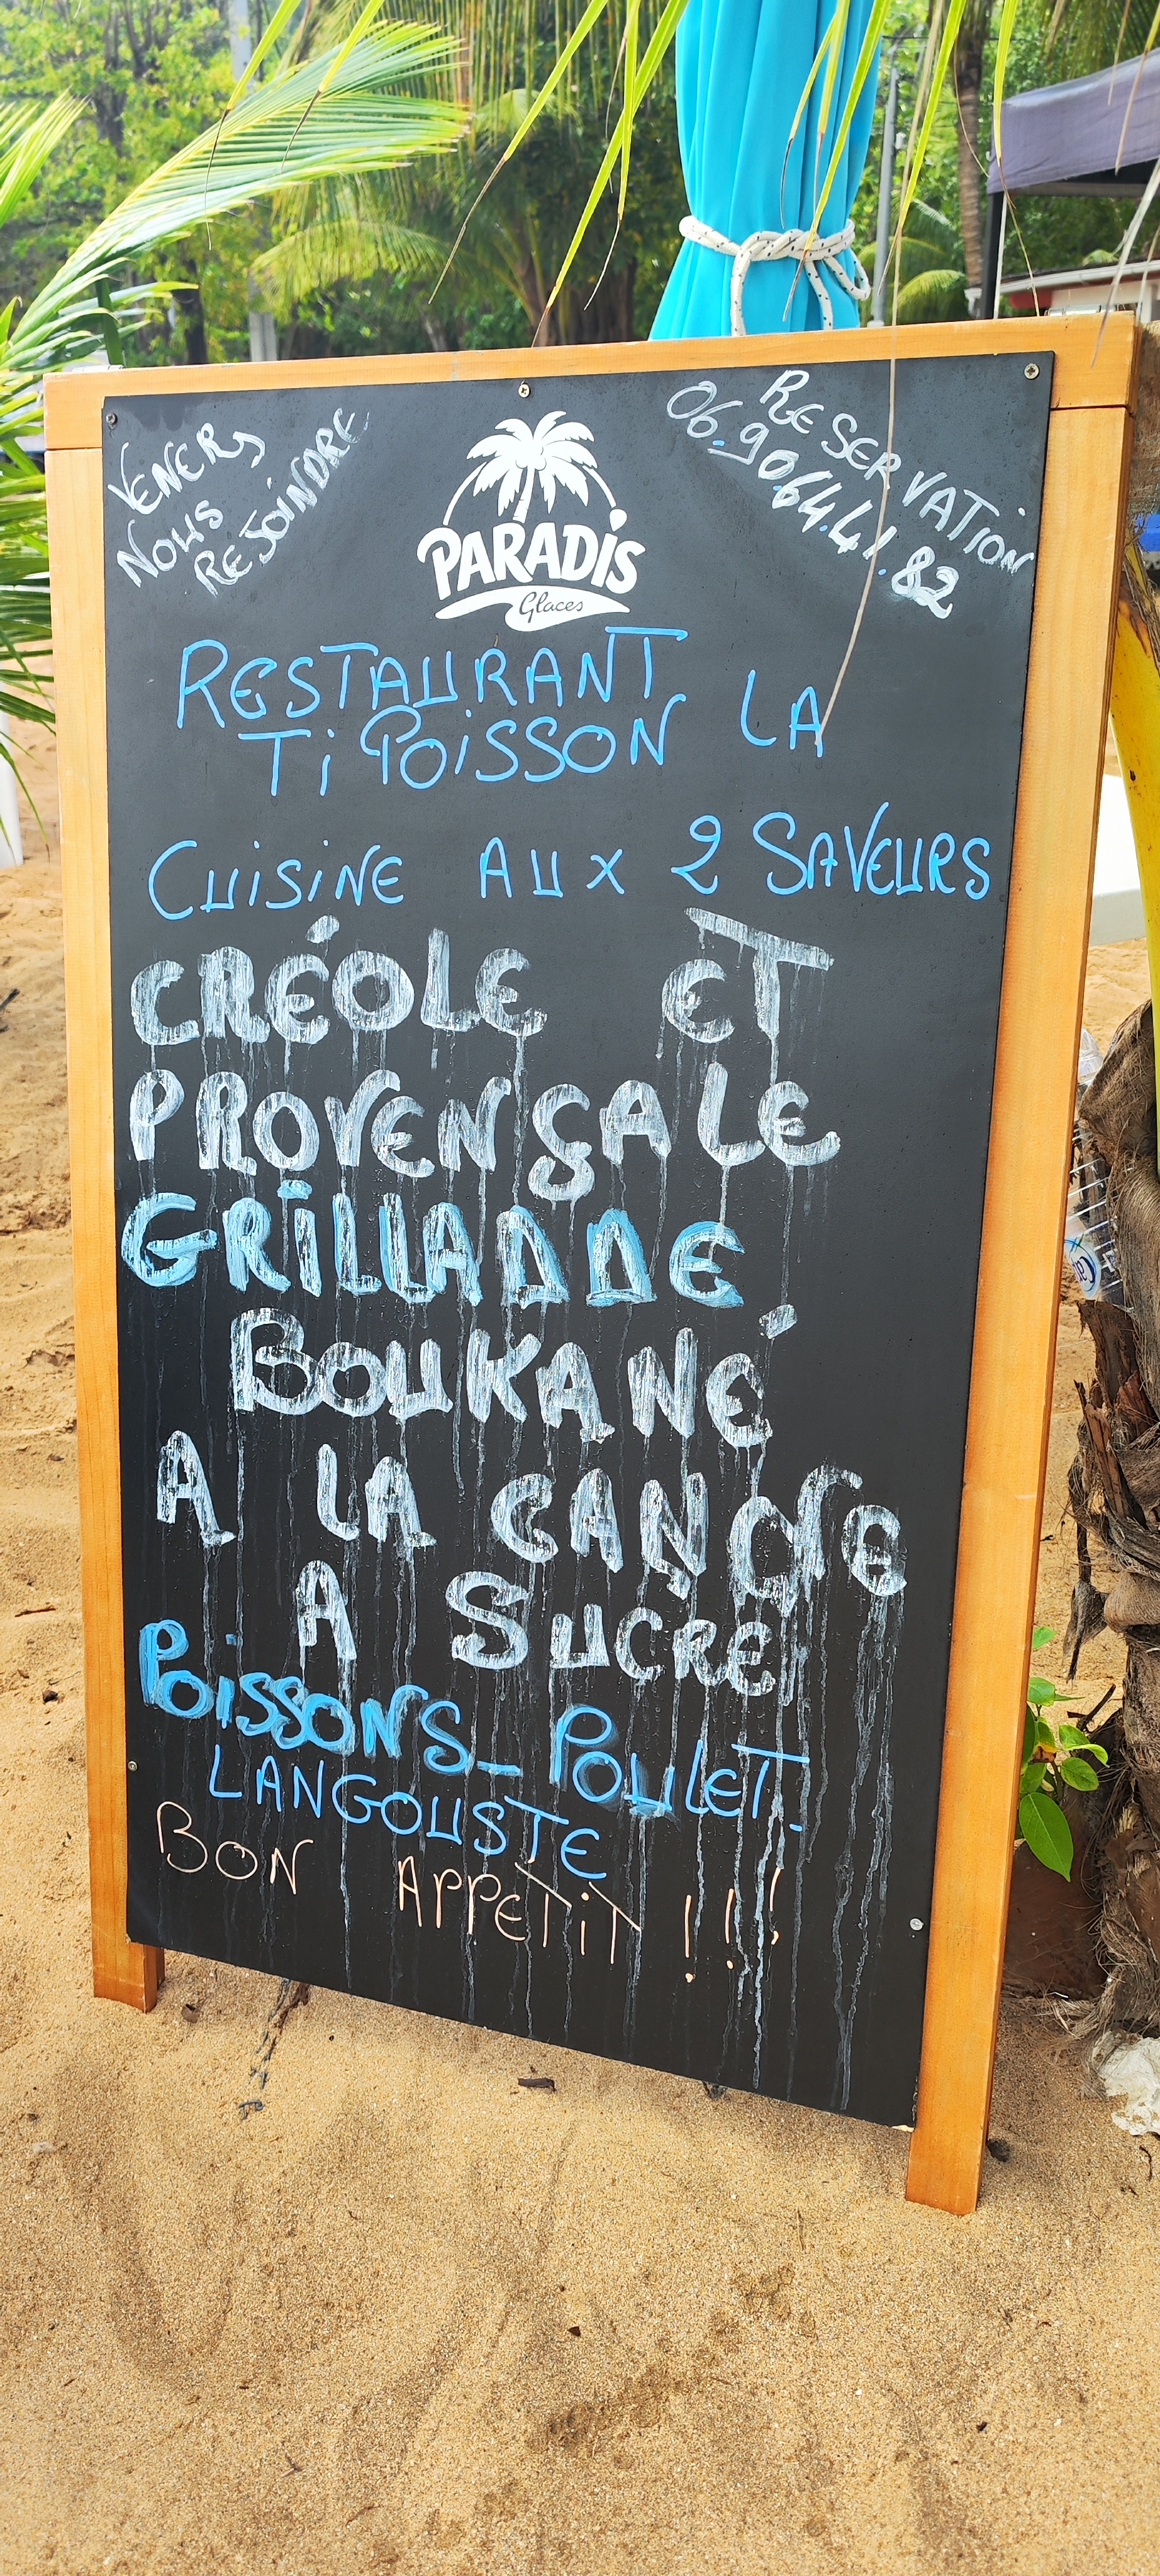 VENERS
NOUS
REJOINDRE
PARADIS
Glaces
RESERVATION
06.90.64.41.82
RESTAURANT LA
Ti POiSSON
CUiSiNE AUX 2 SAVEURS
CRÉOLE ET
PROVENÇALE
GRiLLADDE
BOUKANÉ
A LA CANNE
A SUCRE
POiSSONS_POULET.
LANGOUSTE
BON APPETiT !!!